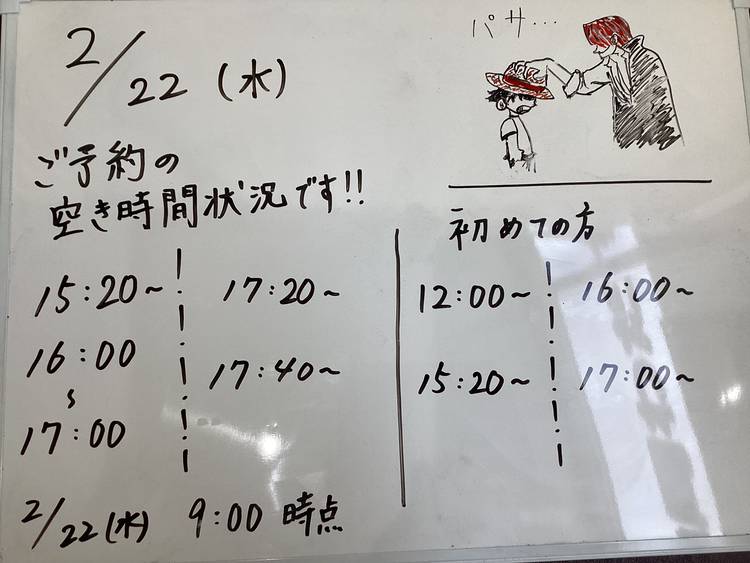 2/22(水)
パサ...
ご予約の
空き時間状況です!!
15:20~
17:20~
16:00
~
17:00
17:40~
初めての方
12:00~
16:00~
15:20~
17:00~
2/22(水) 9:00 時点